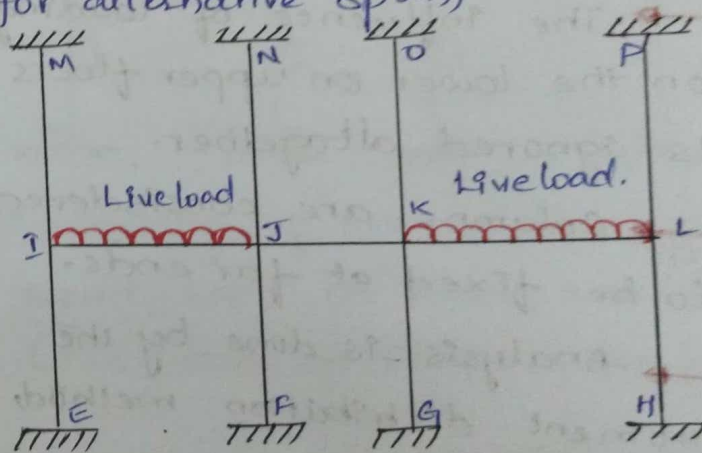 for alternative spans
M N O P
Live load Live load.
I J K L
E F G H